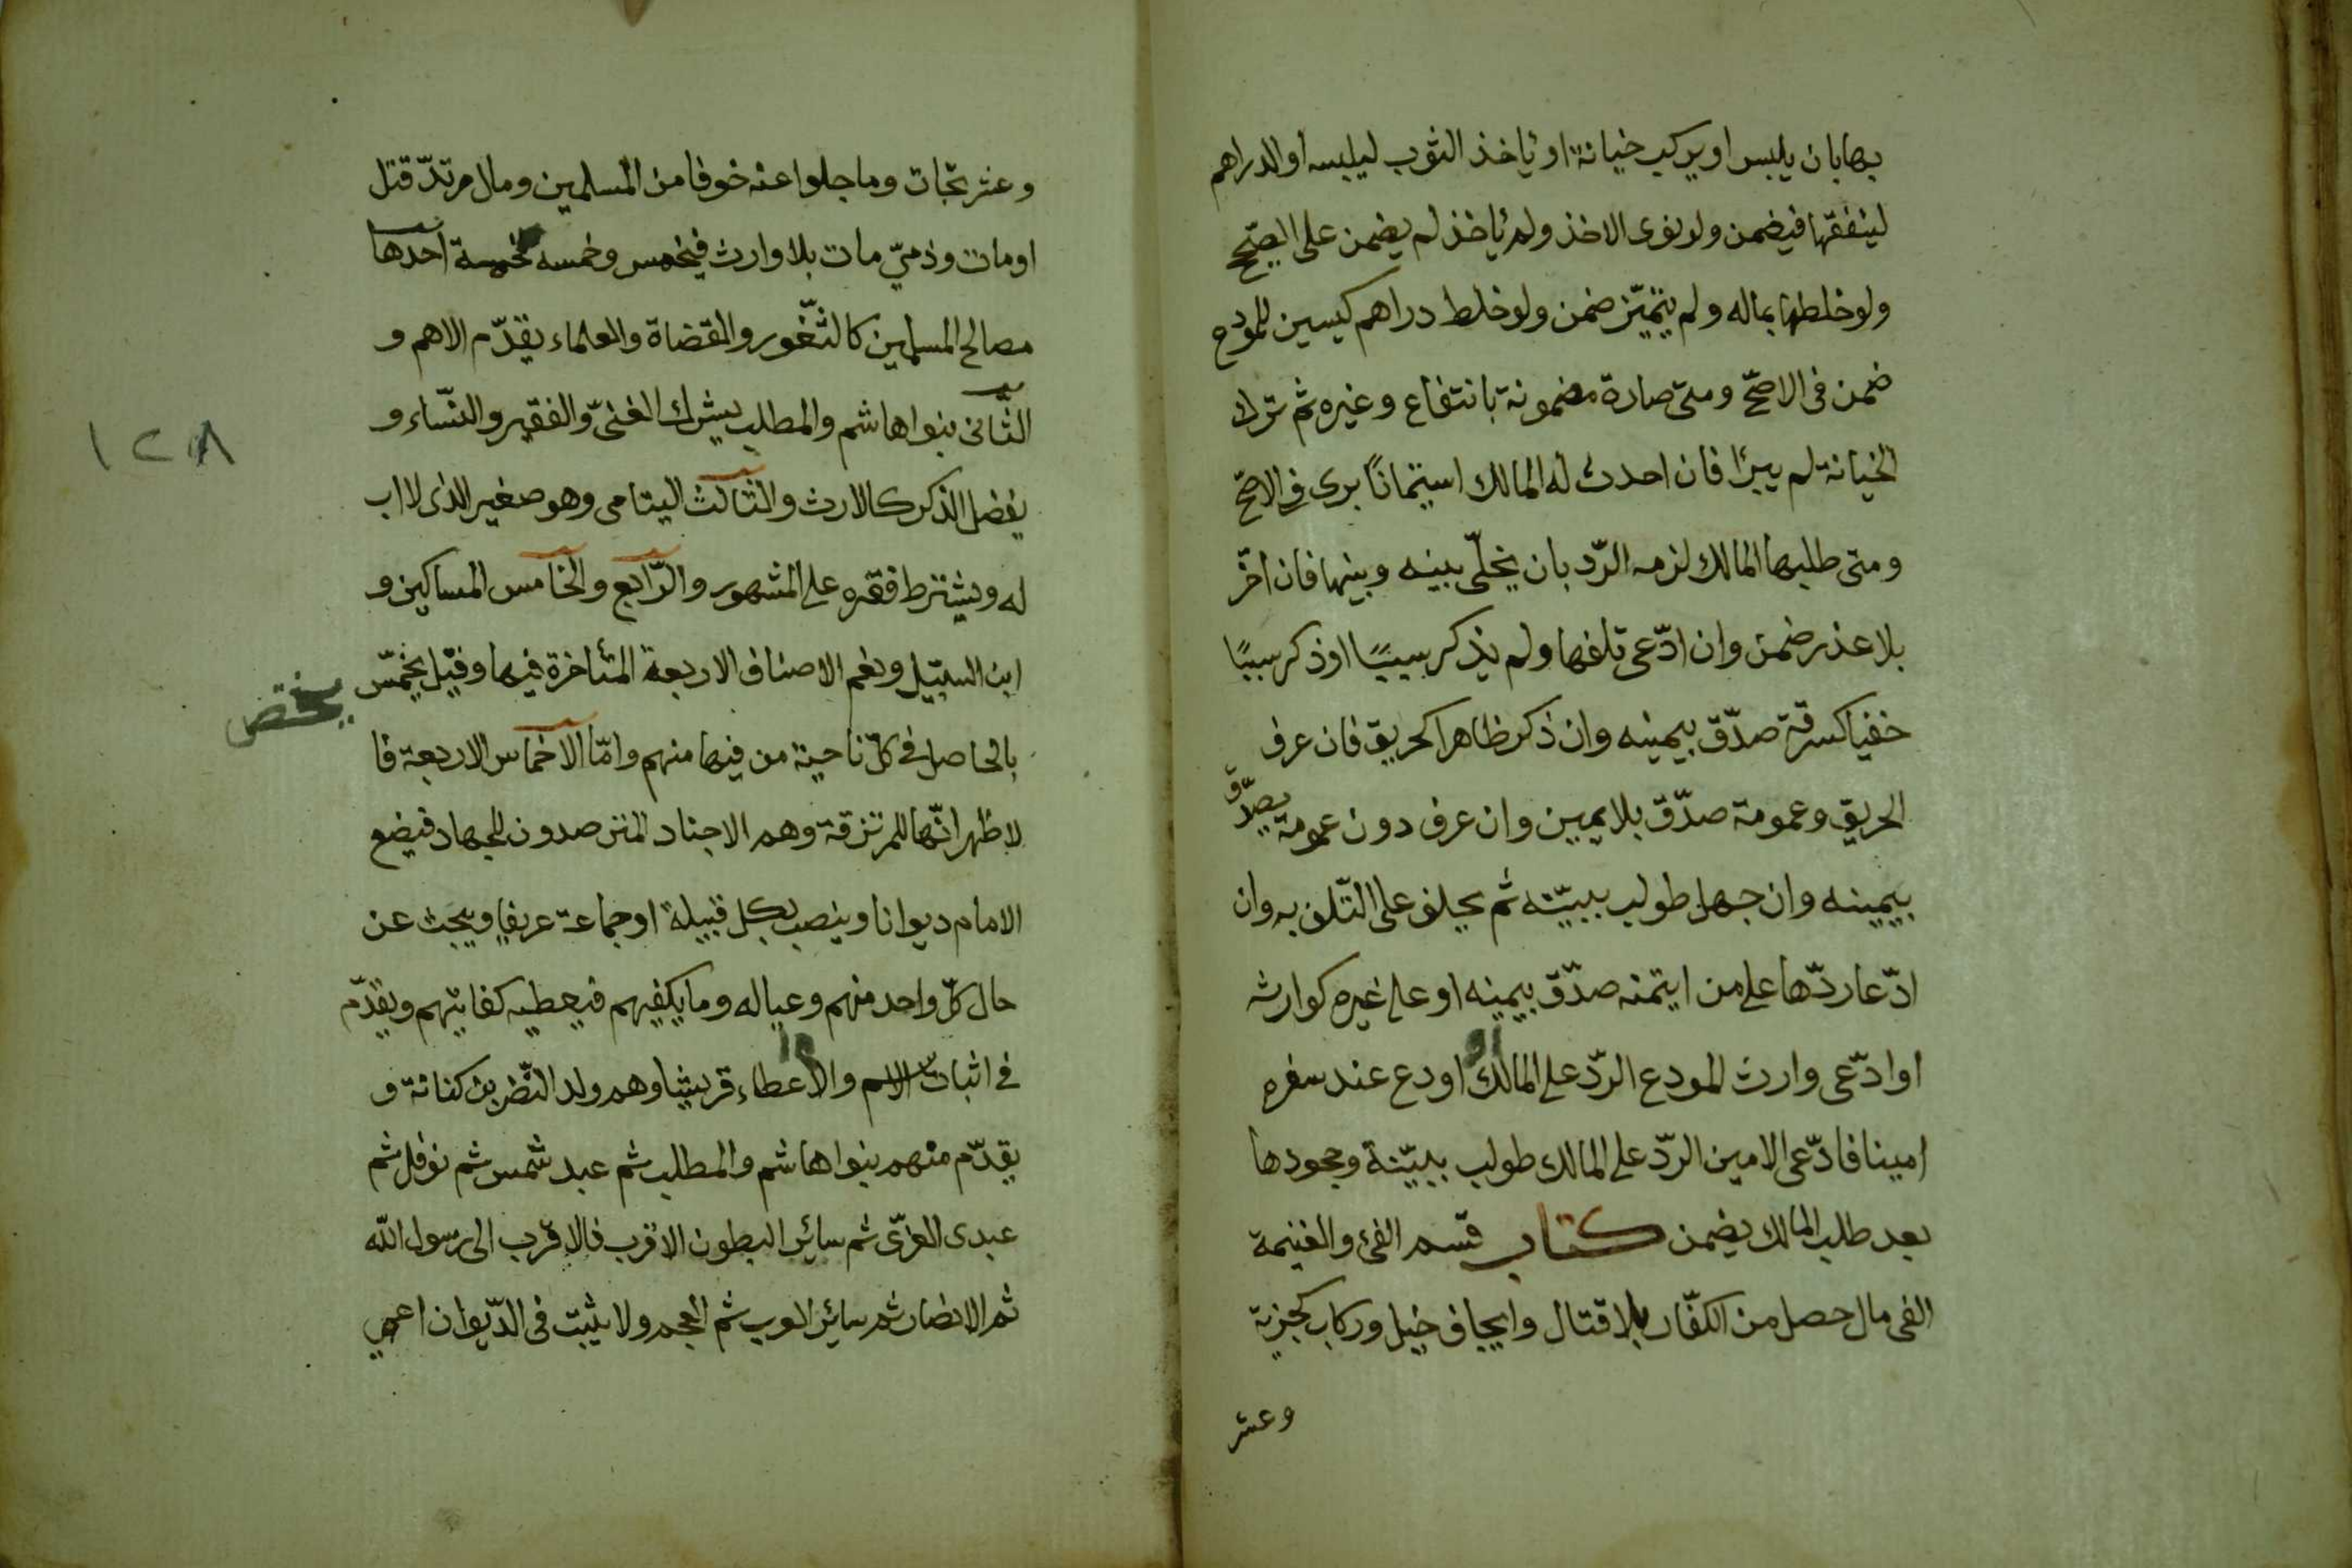 بها بان يلبس او يركب خيانة او ياخذ الثوب ليلبسه او الدراهم
لينفقها فيضمن ولو نوى الاخذ ولم ياخذ لم يضمن على الصّحيح
ولو خلطها بماله ولم يتميّز ضمن ولو خلط دراهم كيسين للمودع
ضمن فى الاصحّ ومتى صارة مضمونة بانتفاع وغيره ثم ترك
الخيانة لم يبرأ فان احدث له المالك استيمانًا برى فى الاصحّ
ومتى طلبها المالك لزمه الرّد بان يخلّى بينه وبينها فان اخّر
بلا عذر ضمن وان ادّعى تلفها ولم يذكر سببًا او ذكر سببًا
خفيا كسرقة صدّق بيمينه وان ذكر ظاهرا كحريق فان عرف
الحريق وعمومة صدّق بلا يمين وان عرف دون عمومة يصدّق
بيمينه وان جهل طولب ببيّنه ثم يحلف على التّلف به وان
ادّعا ردّها على من ايتمنه صدّق بيمينه او على غيره كوارثه
او ادّعى وارث المودع الردّ على المالك او اودع عند سفره
امينا فادّعى الامين الردّ على المالك طولب ببيّنة وجحودها
بعد طلب المالك يضمن كتاب قسم الفئ والغنيمة
الفى مال حصل من الكفّار بلا قتال وايجاف خيل وركاب كجزية
وعشر
وعشر تجات وما جلوا عنه خوفا من المسلمين ومال مرتدّ قتل
او مات وذميّ مات بلا وارث فيخمس وخمسه لخمسة احدها
مصالح المسلمين كالثّغور والقضاة والعلماء يقدّم الاهم و
الثّانى بنوا هاشم والمطلب يشرك الغنىّ والفقير والنّساء و
يفضل الذكر كالارث والثالث اليتامى وهو صغير الذى لا اب
له ويشترط فقره على المشهور والرّابع والخامس المساكين و
ابن السبيل ويعم الاصناف الاربعة المتأخرة فيها وقيل يخمّس
يختص
بالحاصل فى كلّ ناحية من فيها منهم وامّا الاخماس الاربعة فا
لاظهر انّها للمرتزقة وهم الاجناد المترصدون للجهاد فيضع
الامام ديوانا وينصب لكل قبيلة او جماعة عريفا ويبحث عن
حال كلّ واحد منهم وعياله وما يكفيهم فيعطيه كفايتهم ويقدّم
فى اثبات الاسم والاعطاء قريشا وهم ولد النّضر بن كنانة و
يقدّم منهم بنوا هاشم والمطلب ثم عبد شمس ثم نوفل ثم
عبدى العزّى ثم سائر البطون الاقرب فالاقرب الى رسول اللّه
ثم الانصار ثم سائر العرب ثم العجم ولا يثبت فى الدّيوان اعمى
١٢٨